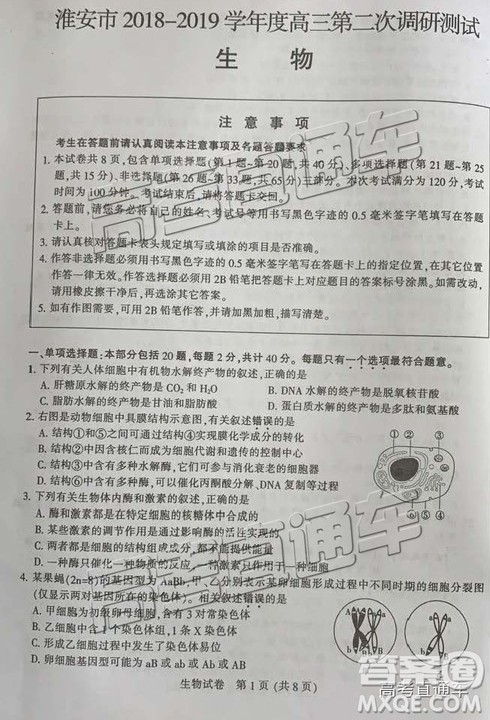 淮安市 2018-2019 学年度高三第二次调研测试
生 物
注 意 事 项
考生在答题前请认真阅读本注意事项及各题答题要求
1. 本试卷共 8 页，包含单项选择题(第 1 题~第 20 题，共 40 分)、多项选择题(第 21 题~第 25
题，共 15 分)、非选择题(第 26 题~第 33 题，共 65 分)三部分。本次考试满分为 120 分，考试
时间为 100 分钟。考试结束后，请将答题卡交回。
2. 答题前，请您务必将自己的姓名、考试号等用书写黑色字迹的 0.5 毫米签字笔填写在答题
卡上。
3. 请认真核对答题卡表头规定填写或填涂的项目是否准确。
4. 作答非选择题必须用书写黑色字迹的 0.5 毫米签字笔写在答题卡上的指定位置，在其它位置
作答一律无效。作答选择题必须用 2B 铅笔把答题卡上对应题目的答案标号涂黑。如需改动，
请用橡皮擦干净后，再选涂其它答案。
5. 如有作图需要，可用 2B 铅笔作答，并请加黑加粗，描写清楚。
一、单项选择题：本部分包括 20 题，每题 2 分，共计 40 分。每题只有一个选项最符合题意。
1. 下列有关人体细胞中有机物水解终产物的叙述，正确的是
A. 肝糖原水解的终产物是 CO₂ 和 H₂O
B. DNA 水解的终产物是脱氧核苷酸
C. 脂肪水解的终产物是甘油和脂肪酸
D. 蛋白质水解的终产物是多肽或氨基酸
2. 右图是动物细胞中具膜结构示意图，有关叙述错误的是
A. 结构①和⑤之间可以通过④实现膜化学成分的转化
B. 结构②中因含核仁而成为细胞代谢和遗传的控制中心
C. 结构③中含有多种水解酶，它们可参与消化衰老的细胞器
D. 结构⑥中含有多种酶，可以催化丙酮酸分解、水的生成等
① ② ③
④ ⑤ ⑥
3. 下列有关生物体内酶和激素的叙述，正确的是
A. 酶和激素的合成都需要在特定细胞的核糖体中合成的
B. 某些激素的调节作用是通过影响酶的活性实现的
C. 两者都是细胞的结构成分，都能多次发挥作用
D. 能产生酶的细胞都能产生激素，但能产生激素的细胞不一定能产生酶
4. 某果蝇(2n=8)的基因型为 AaBb，甲、乙分别表示某卵细胞形成过程中不同时期的细胞分裂图
(仅显示两对基因所在的染色体)。相关叙述错误的是
A. 甲细胞为初级卵母细胞，含有 4 对常染色体
B. 乙细胞中含 1 个染色体组，1 条 X 染色体
C. 甲、乙细胞中均发生了染色体变异
D. 卵细胞基因型可能为 aB 或 ab 或 Ab 或 AB
生物试卷 第 1 页 (共 8 页)
高考直通车
答案圈
MXQE.COM
高考直通车